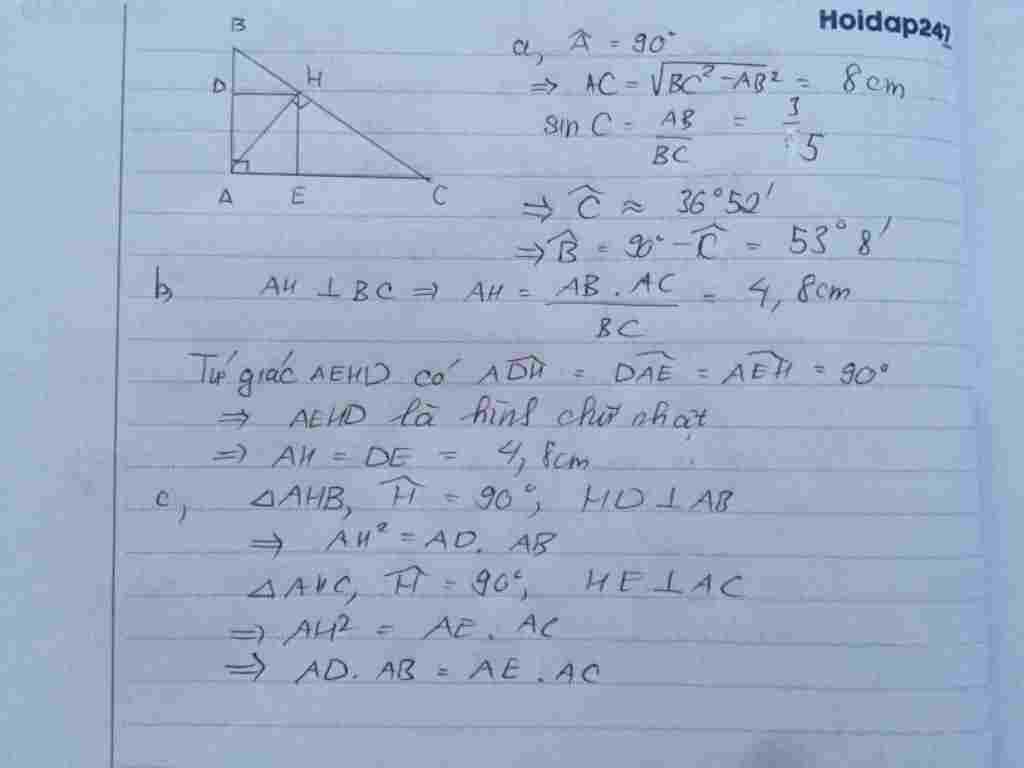 Hoidap247
B
D
H
A
E
C
a, Â = 90°
⇒ AC = √(BC² - AB²) = 8cm
sin C = AB/BC = 3/5
⇒ Ĉ ≈ 36°52'
⇒ B̂ = 90° - Ĉ = 53°8'
b, AH ⊥ BC ⇒ AH = AB . AC/BC = 4,8cm
Tứ giác AEHD có ADH = DAE = AEH = 90°
⇒ AEHD là hình chữ nhật
⇒ AH = DE = 4,8cm
c, △AHB, Ĥ = 90°, HD ⊥ AB
⇒ AH² = AD. AB
△AHC, Ĥ = 90°, HE ⊥ AC
⇒ AH² = AE . AC
⇒ AD. AB = AE . AC